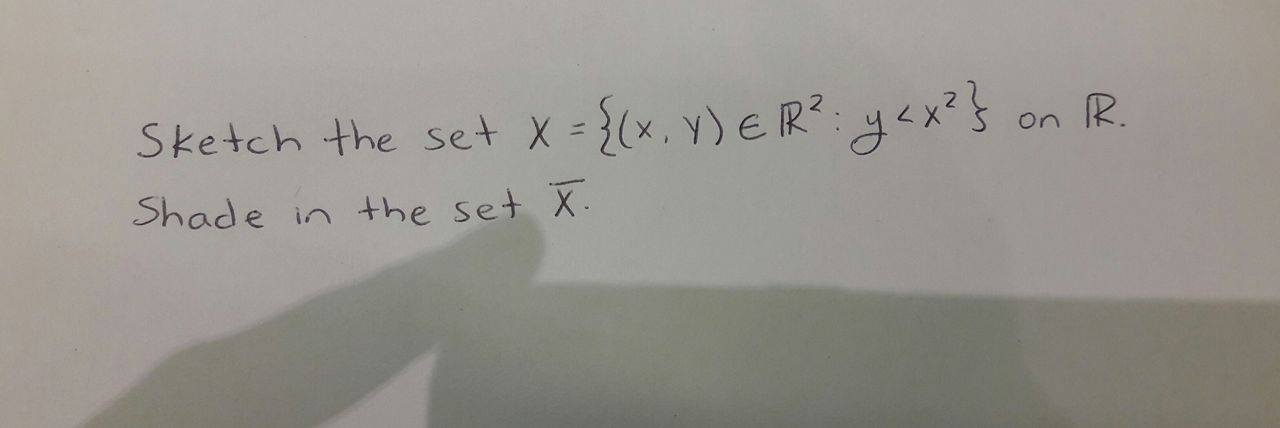 Sketch the set X = {(x, y) ∈ ℝ²: y < x²} on ℝ.
Shade in the set X̅.